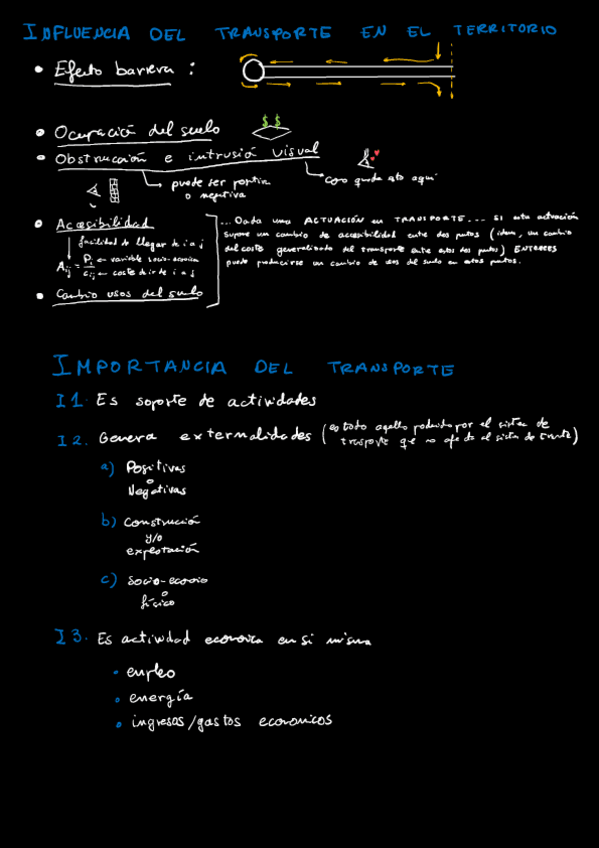 INFLUENCIA DEL TRANSPORTE EN EL TERRITORIO
• Efecto barrera :
• Ocupación del suelo
$ $
• Obstrucción e intrusión visual
puede ser positiva
o negativa
como queda esto aqui
• Accesibilidad
facilidad de llegar de i a j
Aij = Pi ← variable socio-economica
Cij ← coste de ir de i a j
• Cambio usos del suelo
... Dada una ACTUACIÓN en TRANSPORTE... SI esta actuación
supone un cambio de accesibilidad entre dos puntos (idem, un cambio
del coste generalizado del transporte entre estos dos puntos) ENTONCES
puede producirse un cambio de usos del suelo en estos puntos.
IMPORTANCIA DEL TRANSPORTE
I1. Es soporte de actividades
I2. Genera externalidades (es todo aquello producido por el sistema de
trasporte que no afecta al sistema de)
a) Positivas
o
Negativas
b) Construcción
y/o
explotación
c) Socio-econo
o
físico
I3. Es actividad economica en si misma
• empleo
• energía
• ingresos/gastos economicos